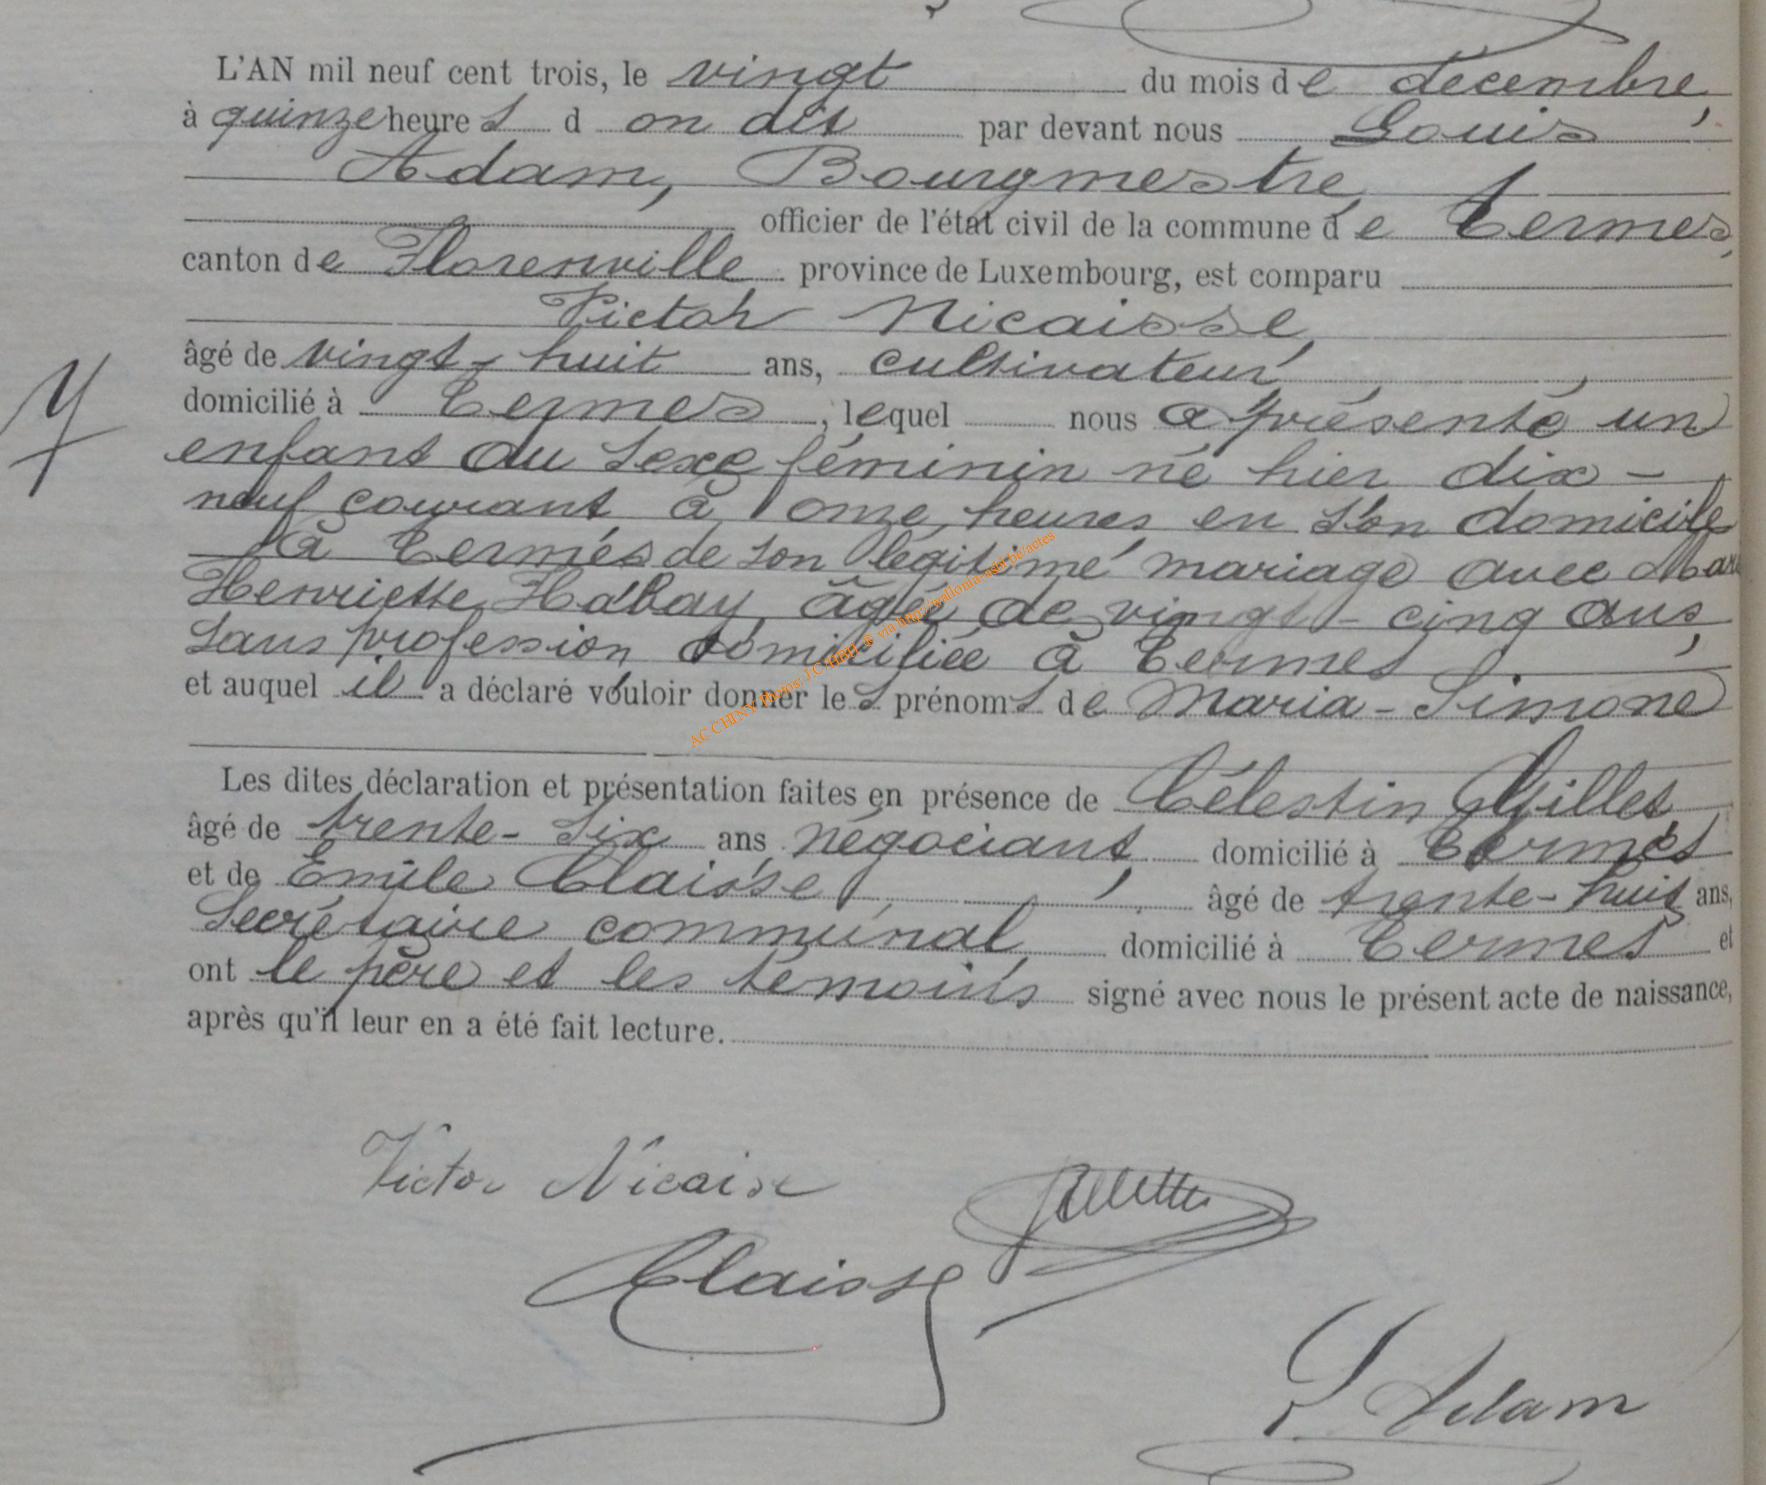 L'AN mil neuf cent trois, le vingt du mois de décembre,
à quinze heures d on dit par devant nous Louis
Adam, Bourgmestre,
officier de l'état civil de la commune de Termes,
canton de Florenville, province de Luxembourg, est comparu
Victor Nicaisse,
âgé de vingt-huit ans, cultivateur,
domicilié à Termes, lequel nous a présenté un
enfant du sexe féminin né hier dix-
neuf courant à onze heures en son domicile
à Termes de son légitime mariage avec
Henriette Habay, âgée de vingt-cinq ans,
sans profession domiciliée à Termes
et auquel il a déclaré vouloir donner les prénoms de Maria-Simone
Les dites déclaration et présentation faites en présence de Célestin Gillet,
âgé de trente-six ans négociant, domicilié à Termes
et de Emile Claisse, âgé de trente-huit ans,
Secrétaire communal, domicilié à Termes et
ont le père et les témoins signé avec nous le présent acte de naissance,
après qu'il leur en a été fait lecture.
AC CHINY Photos: J.C. via http://wallonia-asbl.be/actes
Victor Nicaise
Claisse
L Adam